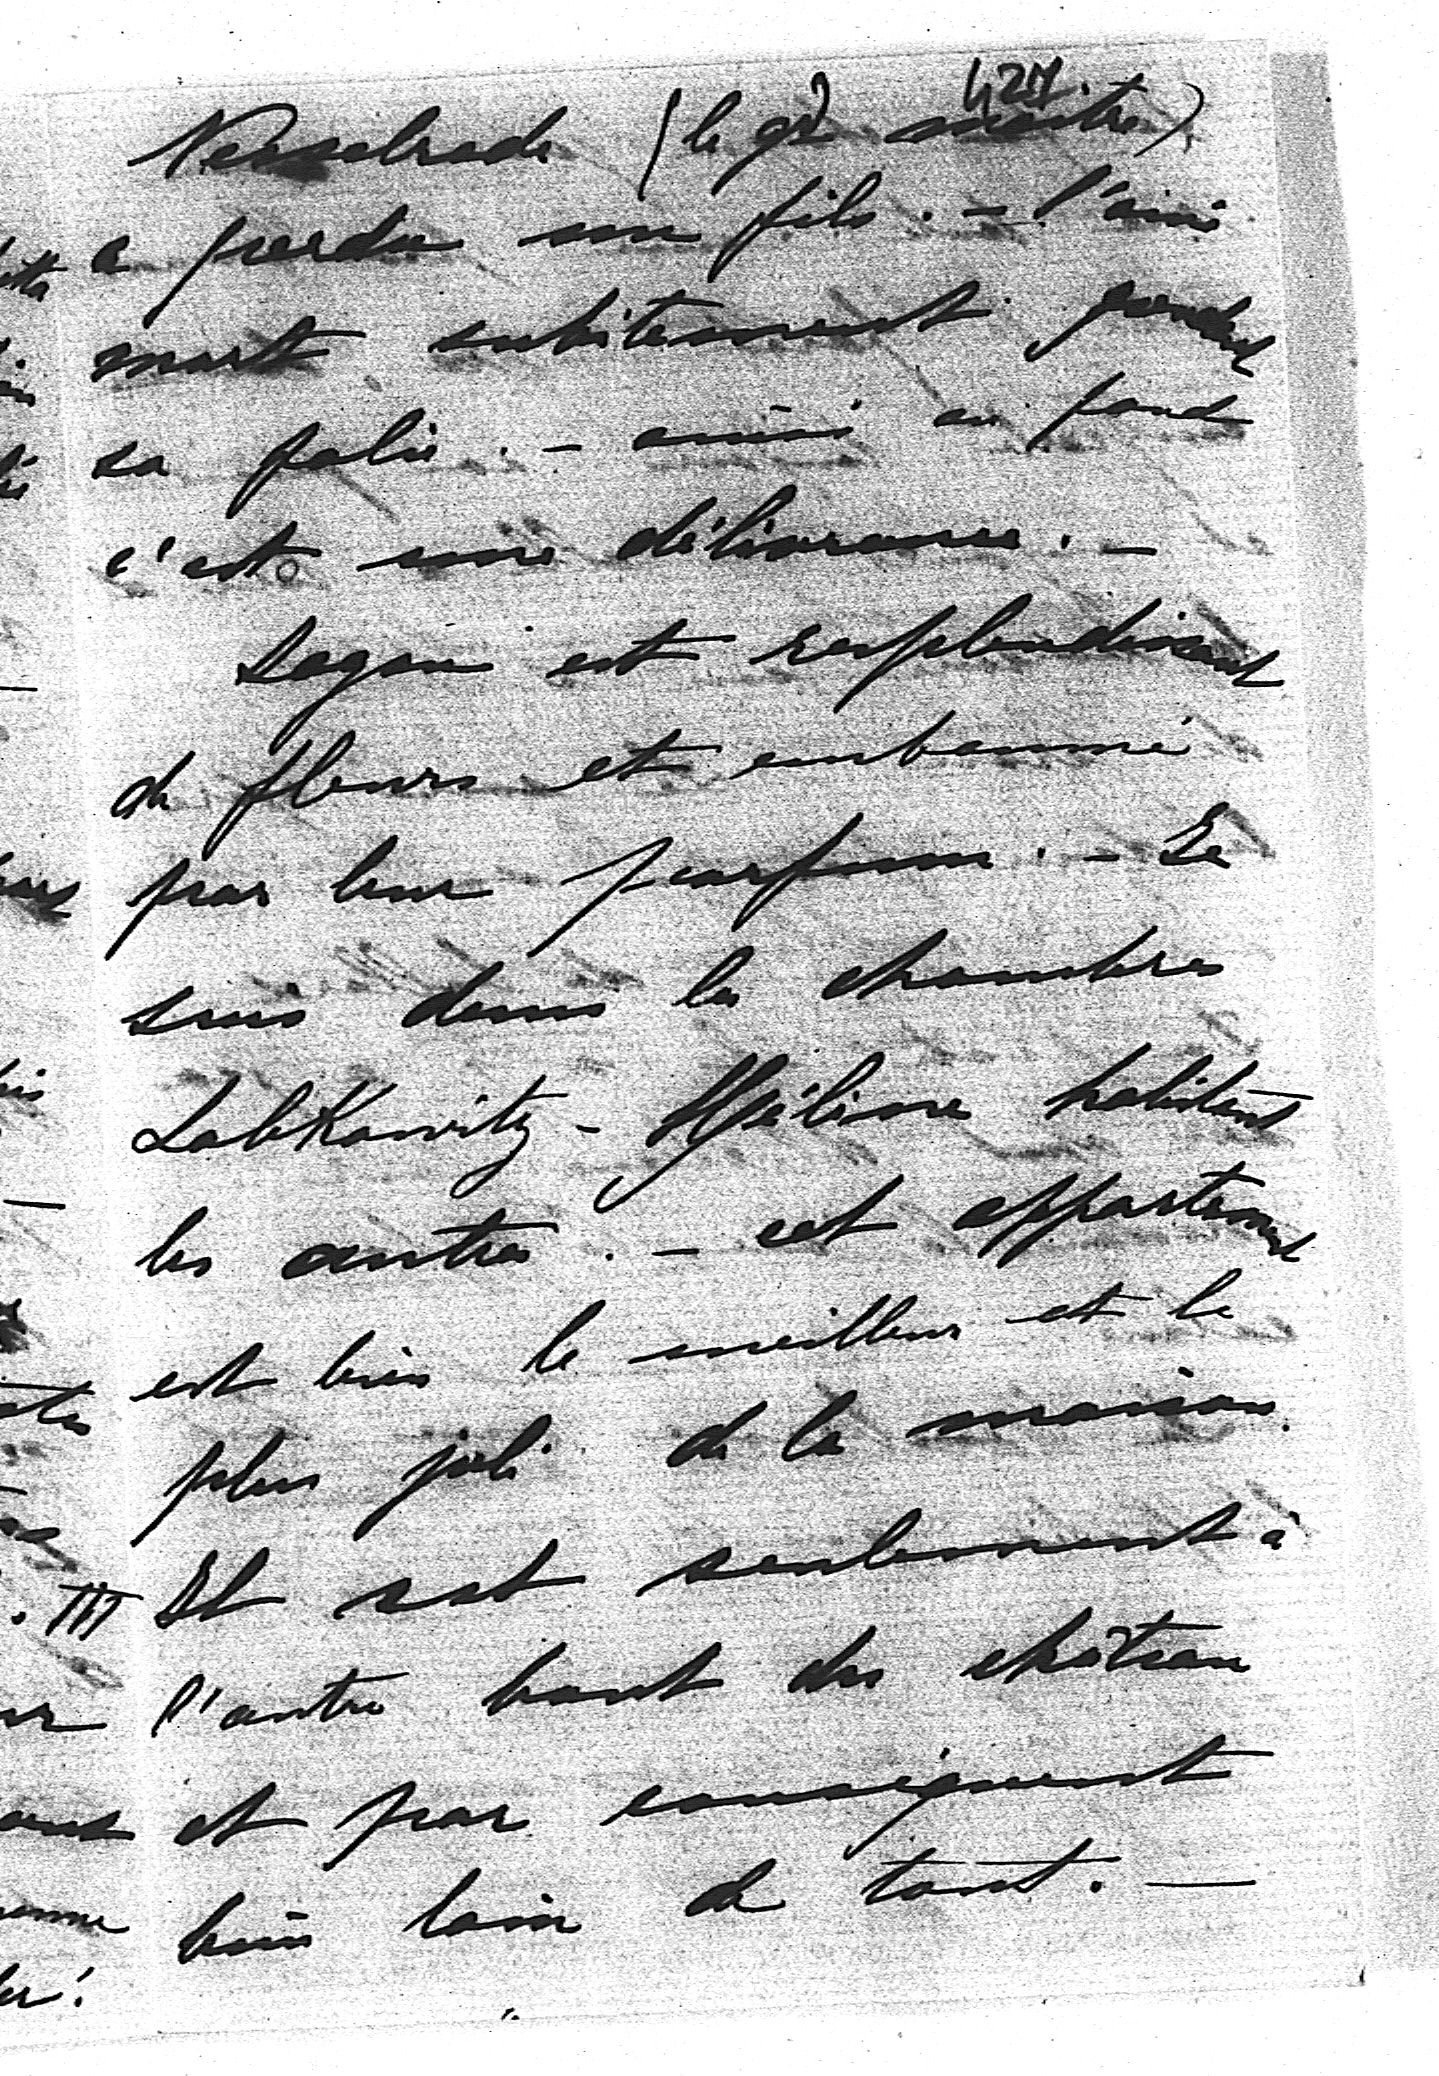 427.
Nesselrode (le gd maître)
a perdu un fils. – l'ainé
mort subitement pendant
sa folie. – ainsi au fond
c'est une délivrance. –
Sagan est resplendissant
de fleurs et embaumé
par leur parfum. – Je
suis dans les chambres
Lobkowitz – Hélène habitent
les autres. – cet appartement
est bien le meilleur et le
plus joli de la maison.
Il est seulement à
l'autre bout du château
et par conséquent
bien loin de tout. —